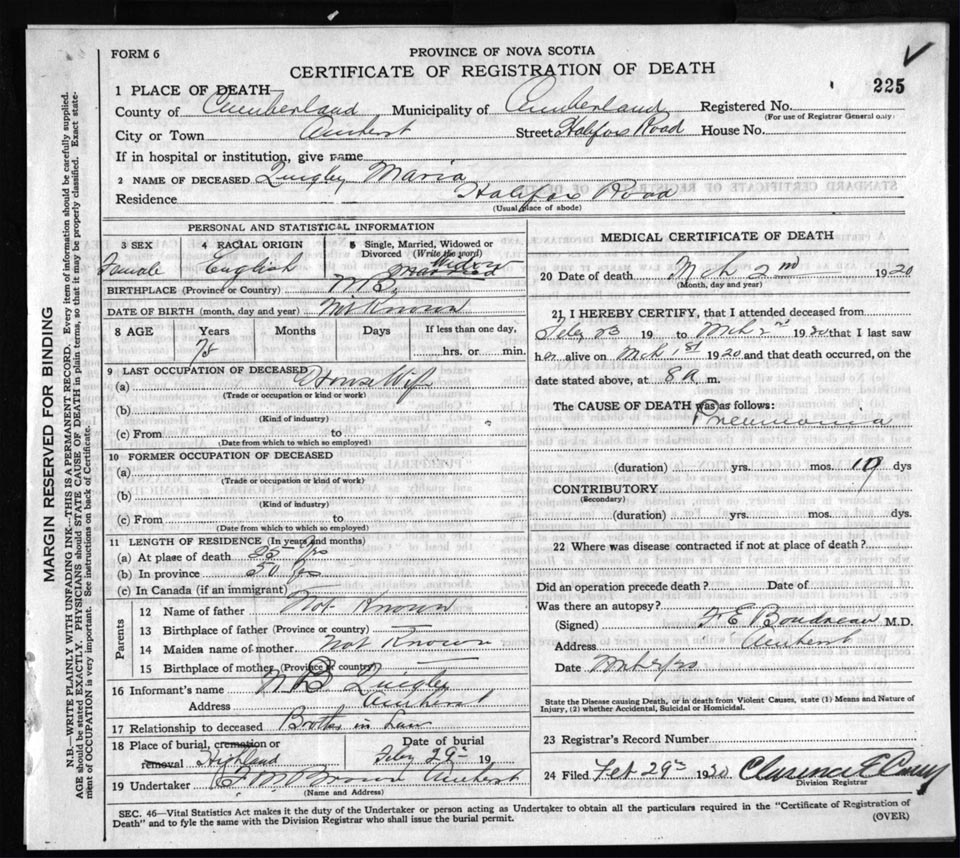 FORM 6
PROVINCE OF NOVA SCOTIA
CERTIFICATE OF REGISTRATION OF DEATH
225
1 PLACE OF DEATH—
County of Cumberland Municipality of Cumberland Registered No.
(For use of Registrar General only)
City or Town Amherst Street Halifax Road House No.
If in hospital or institution, give name
2 NAME OF DECEASED Quigley Maria
Residence Halifax Road
(Usual place of abode)
PERSONAL AND STATISTICAL INFORMATION
3 SEX Female
4 RACIAL ORIGIN English
5 Single, Married, Widowed or Divorced (Write the word)
Widow
BIRTHPLACE (Province or Country) N B
DATE OF BIRTH (month, day and year) Not Known
8 AGE Years Months Days If less than one day,
hrs. or min.
9 LAST OCCUPATION OF DECEASED
(a) House Wife
(Trade or occupation or kind or work)
(b)
(Kind of industry)
(c) From to
(Date from which to which so employed)
10 FORMER OCCUPATION OF DECEASED
(a)
(Trade or occupation or kind of work)
(b)
(Kind of industry)
(c) From to
(Date from which to which so employed)
11 LENGTH OF RESIDENCE (In years and months)
(a) At place of death 25 yrs
(b) In province 50 yrs
(c) In Canada (if an immigrant)
Parents
12 Name of father Not Known
13 Birthplace of father (Province or country) —
14 Maiden name of mother Not Known
15 Birthplace of mother (Province or country) —
16 Informant's name N B Quigley
Address Amherst
17 Relationship to deceased Brother in Law
18 Place of burial, cremation or removal Highland
Date of burial Feby 29th 19
19 Undertaker Brown Amherst
(Name and Address)
MEDICAL CERTIFICATE OF DEATH
20 Date of death Mch 2nd 1920
(Month, day and year)
21 I HEREBY CERTIFY, that I attended deceased from
Feby 23 19 to Mch 2nd 1920 that I last saw
her alive on Mch 1st 1920 and that death occurred, on the
date stated above, at 8 a m.
The CAUSE OF DEATH was as follows:
Pneumonia
(duration) yrs. mos. dys
CONTRIBUTORY
(Secondary)
(duration) yrs. mos. dys.
22 Where was disease contracted if not at place of death?
Did an operation precede death? Date of
Was there an autopsy?
(Signed) F E Boudreau M.D.
Address Amherst
Date
State the Disease causing Death, or in death from Violent Causes, state (1) Means and Nature of
Injury, (2) whether Accidental, Suicidal or Homicidal.
23 Registrar's Record Number
24 Filed Feb 29th 1920 Clarence E Casey
Division Registrar
SEC. 46—Vital Statistics Act makes it the duty of the Undertaker or person acting as Undertaker to obtain all the particulars required in the "Certificate of Registration of
Death" and to fyle the same with the Division Registrar who shall issue the burial permit.
(OVER)
MARGIN RESERVED FOR BINDING
N.B.—WRITE PLAINLY WITH UNFADING INK—THIS IS A PERMANENT RECORD. Every item of information should be carefully supplied.
AGE should be stated EXACTLY. PHYSICIANS should STATE CAUSE OF DEATH in plain terms, so that it may be properly classified. Exact state-
ment of OCCUPATION is very important. See instructions on back of Certificate.